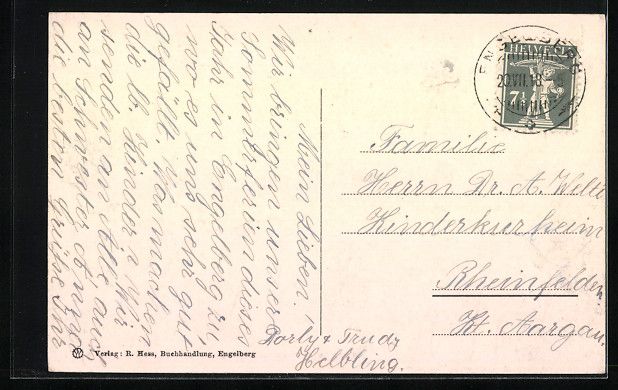 Mein Lieben!
Wir bringen unsere
Sommerferien dieses
Jahr in Engelberg zu,
wo es uns sehr gut
gefällt. Was machen
die lb. Kinder? Wir
senden an Alle, auch
an Schwester
die besten Grüsse Ihr
Dorly & Trudy
Helbling.
ENGELBERG
20.VII.18
HELVETIA
7½
Familie
Herrn Dr. A. Welti
Kinderkurheim
Rheinfelden
Kt. Aargau.
Verlag: R. Hess, Buchhandlung, Engelberg